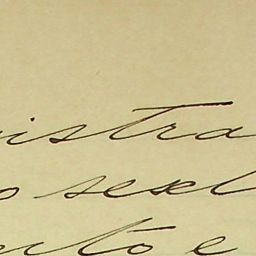 istra
o sexl
ento e